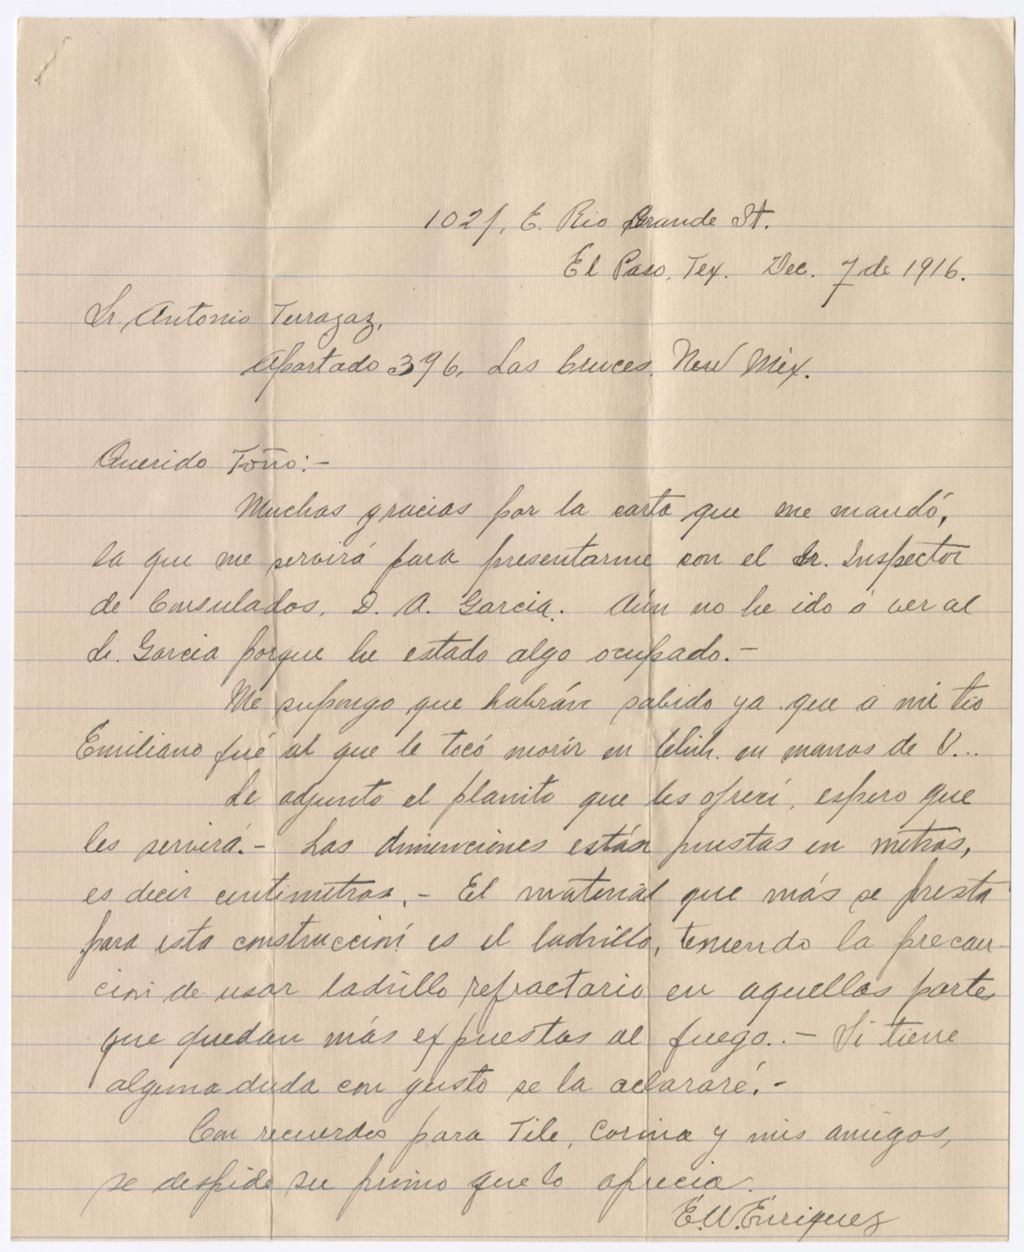 1021, E. Rio Grande St.
El Paso, Tex. Dec. 7 de 1916.
Sr. Antonio Terrazaz,
Apartado 396, Las Cruces, New Mex.
Querido Toño:-
Muchas gracias por la carta que me mandó,
la que me servirá para presentarme con el Sr. Inspector
de Consulados, D. A. Garcia. Aún no he ido á ver al
Sr. Garcia porque he estado algo ocupado.-
Me supongo que habrán sabido ya que a mi tio
Emiliano fué al que le tocó morir en Chih. en manos de V...
Le adjunto el planito que les ofrecí, espero que
les servirá.- Las dimenciones están puestas en metros,
es decir centimetros.- El material que más se presta
para esta construcción es el ladrillo, teniendo la precau-
ción de usar ladrillo refractario en aquellas partes
que quedan más expuestas al fuego..- Si tiene
alguna duda con gusto se la aclararé.-
Con recuerdos para Tile, Corina y mis amigos,
se despide su primo que lo aprecia.
E.W. Enriquez